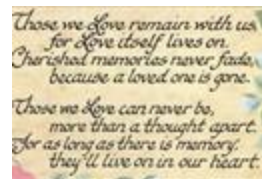 Those we Love remain with us
for Love itself lives on.
Cherished memories never fade,
because a loved one is gone.
Those we Love can never be,
more than a thought apart.
For as long as there is memory,
they'll live on in our heart.